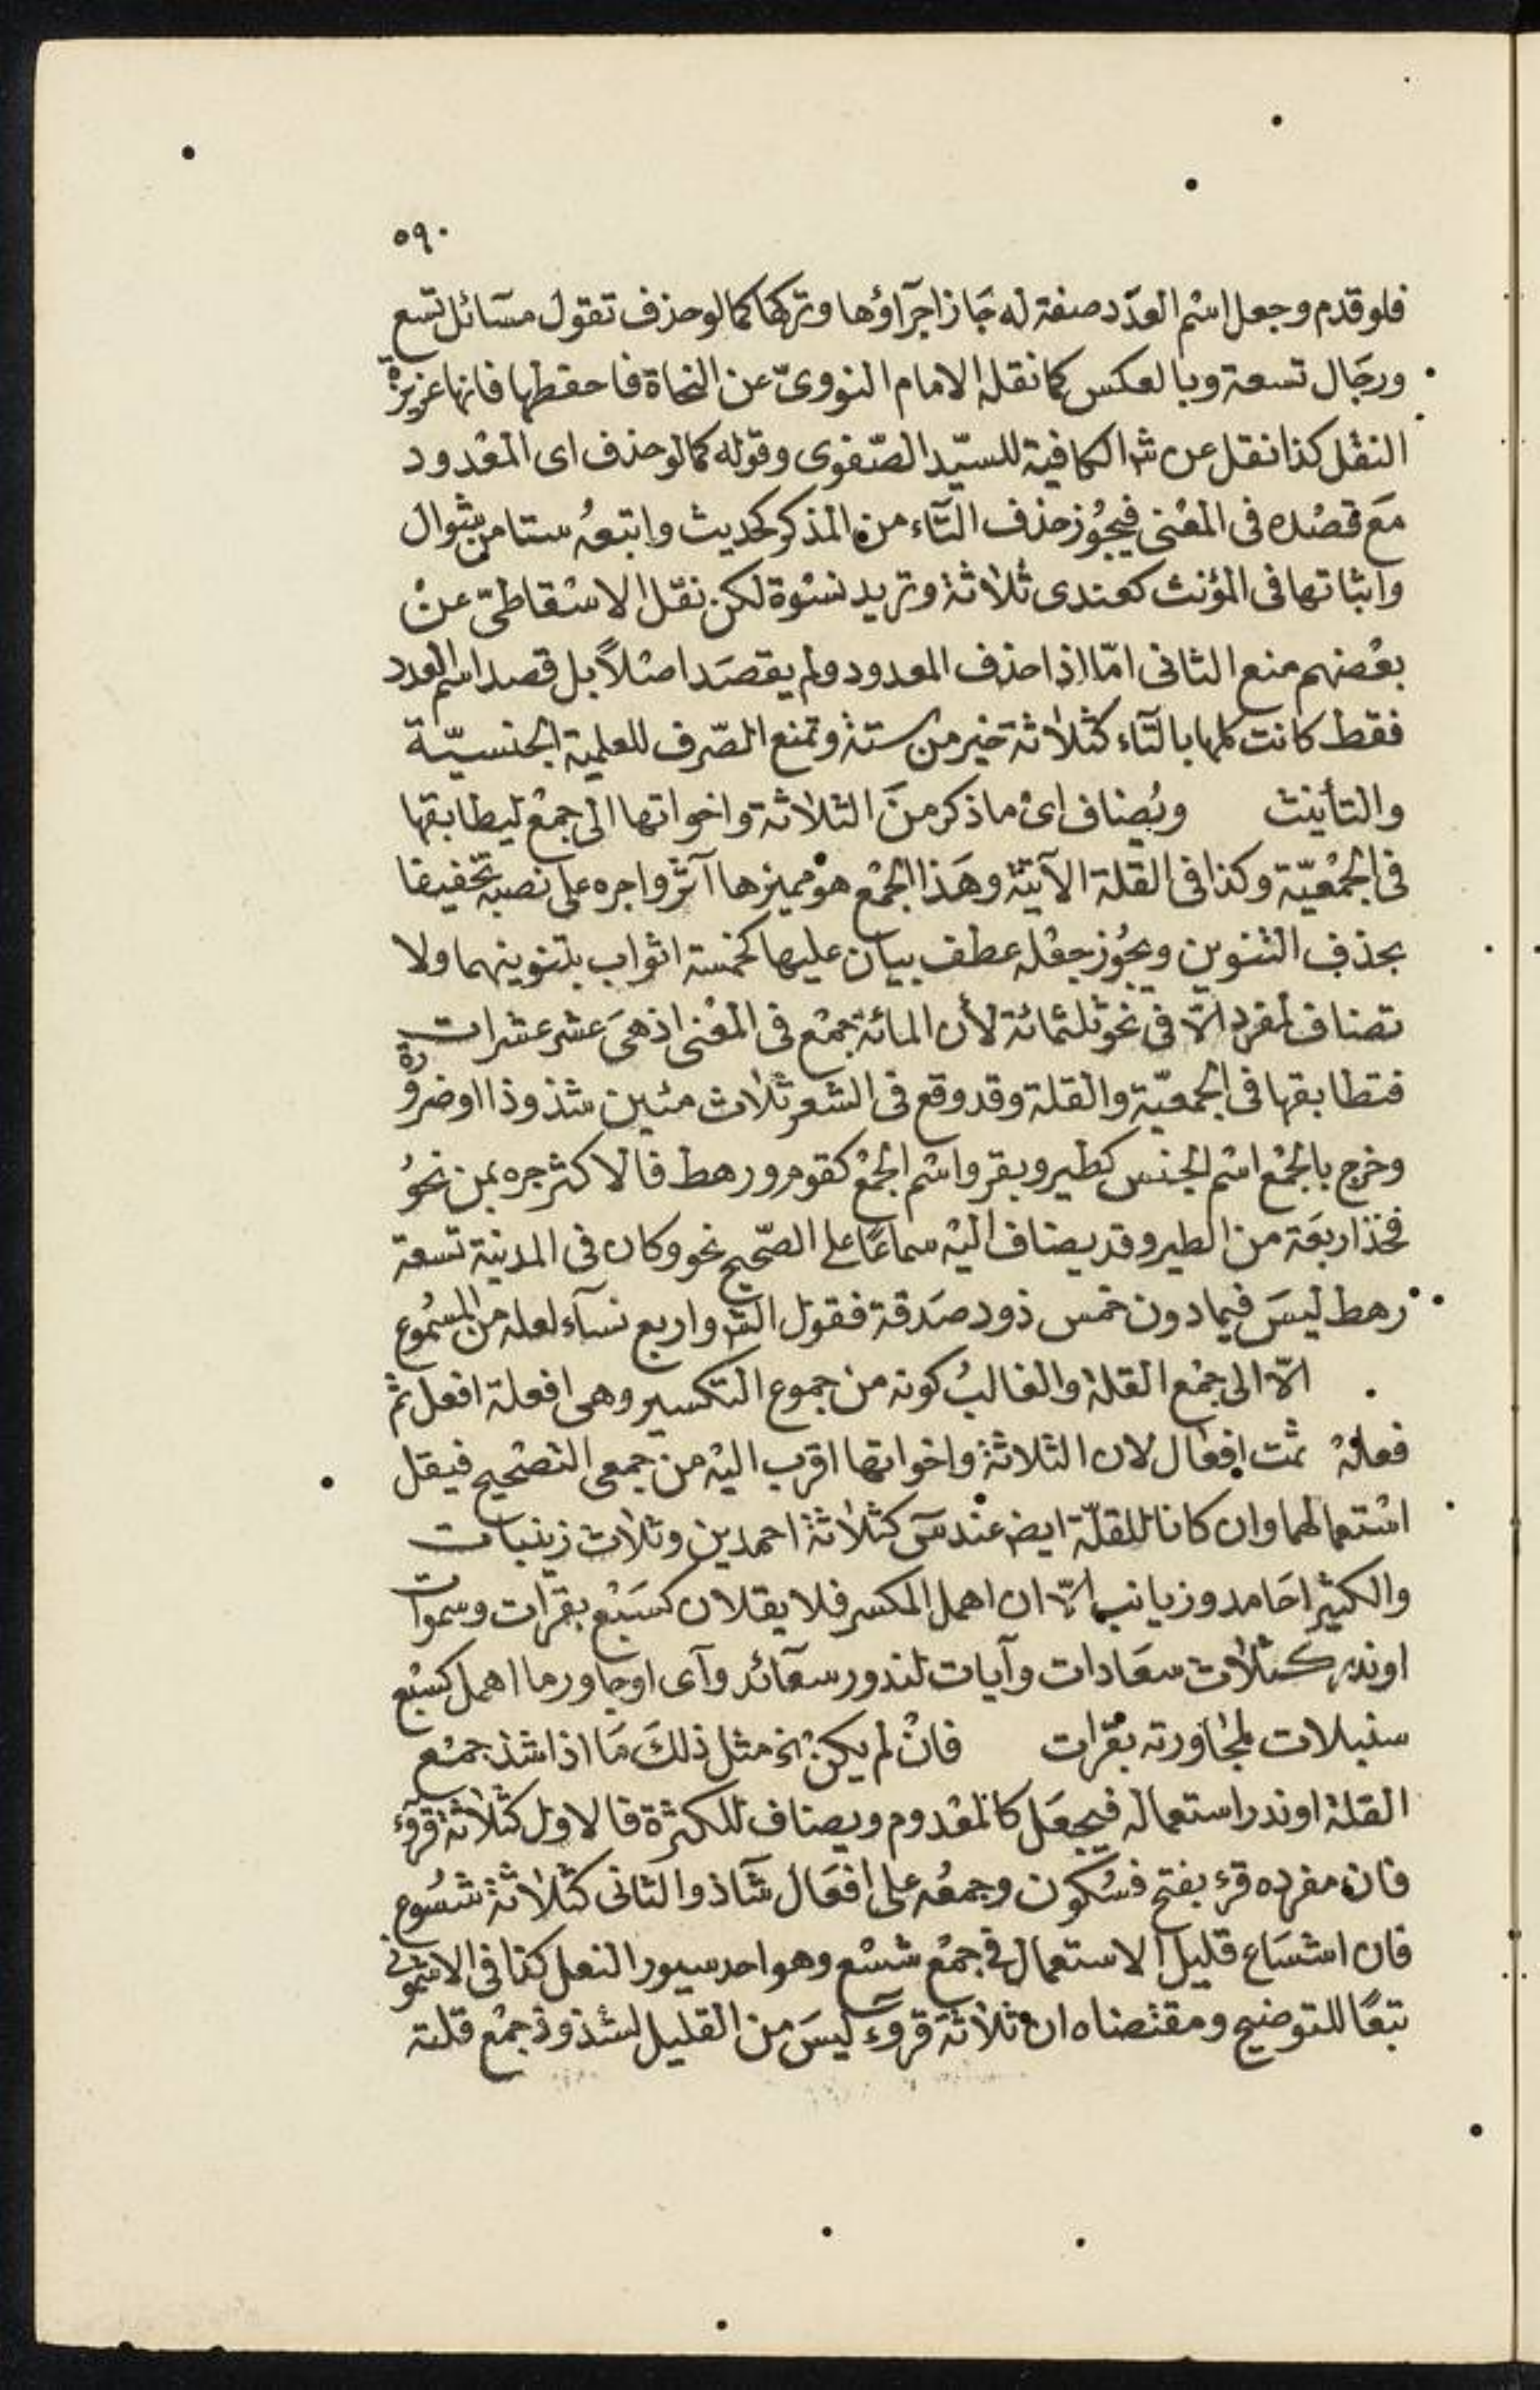 ٥٩٠
فلو قدم وجعل اسْم العدّد صفة له جَاز اجرآؤها وتركها كما لو حذف تقول مسَائل تسع
ورجَال تسعة وبالعكس كما نقله الامام النووىّ عن النحاة فاحفظها فانها عزيزة
النقْل كذا نقل عن ش الكافية للسيّد الصّفوى وقوله كما لو حذف اى المعْدود
مَع قصْده فى المعْنى فيجوُز حذف التآء من المذكر كحديث واتبعهُ ستا من شوال
واثباتها فى المؤنث كعندى ثلاثة وتريد نسْوة لكن نقل الاسْقاطىّ عنْ
بعْضهم منع الثانى امّا اذا حذف المعدود ولم يقصَد اصْلاً بل قصد اسم العدد
فقط كانت كلها بالتآء كثلاثة خير من ستة وتمنع الصّرف للعلمية الجنسيّة
والتأنيث ويُضاف اىْ ما ذكر منَ الثلاثة واخواتها الى جمعْ ليطابقها
فى الجمْعيّة وكذا فى القلة الآتية وهَذا الجمْع هو مميزها آثروا جره على نصبه تخفيفا
بحذف التنوين ويجوُز جعْله عطف بيان عليها كخمْسة اثواب بتنوينهما ولا
تضاف لمفرد الاّ فى نحو ثلثمائة لأن المائة جمْع فى المعْنى اذ هىَ عشر عشرات
فتطابقها فى الجمعيّة والقلة وقد وقع فى الشعر ثلاث مئين شذوذا او ضرورة
وخرج بالجمْع اسْم الجنس كطير وبقر واسْم الجمْع كقوم ورهط فالاكثر جره بمن نحوُ
فخذ اربعَة من الطير وقد يضاف اليْه سماعًا على الصّحيح نحو وكان فى المدينة تسعة
رهط ليسَ فيما دون خمس ذود صَدقة فقول الش واربع نسآء لعله من المسْموع
الاّ الى جمْع القلة والغالبُ كونه من جموع التكسير وهى افعلة افعل ثم
فعلهْ ثمت افعال لان الثلاثة واخواتها اقرب اليْه من جمعى التصْحيح فيقل
اسْتعمالهما وان كانا للقلّة ايض عنْد سَ كثلاثة احمدين وثلاث زينبات
والكثير احَامد وزيانب الاّ ان اهمل المكسر فلا يقلان كسَبْع بقرَات وسموات
او ندر كثلاث سعَادات وآيات لندور سعآئد وآى او جاور ما اهمل كسَبْع
سنبلات لمجَاورته بقرَات فانْ لم يكنْ الخ مثل ذلكَ مَا اذا شذ جمْع
القلة او ندر استعماله فيجعَل كالمعْدوم ويضاف للكثرة فالاول كثلاثة قروء
فان مفرده قرء بفتح فسُكون وجمعُه على افعَال شَاذ والثانى كثلاثة شسُوع
فان اشسَاع قليل الاستعمال فى جمْع شسْع وهو احد سيور النعل كذا فى الاشمونى
تبعًا للتوضيح ومقتضاه ان ثلاثة قروء ليسَ من القليل لشذوذ جمْع قلته